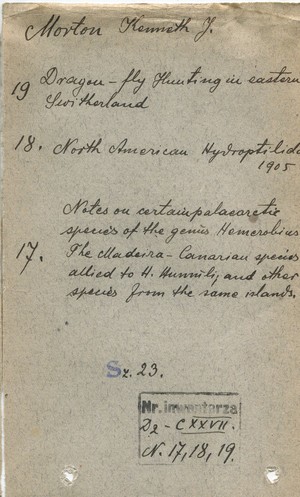 Morton Kenneth J.
19 Dragon-fly Hunting in eastern
Switherland
18. North American Hydroptilidae
1905
Notes on certain palaearctic
species of the genus Hemerobius
17. The Madeira-Canarian species
allied to H. Humuli, and other
species from the same islands.
Sz. 23.
Nr. inwentarza
D2 - CXXVII.
N. 17, 18, 19.